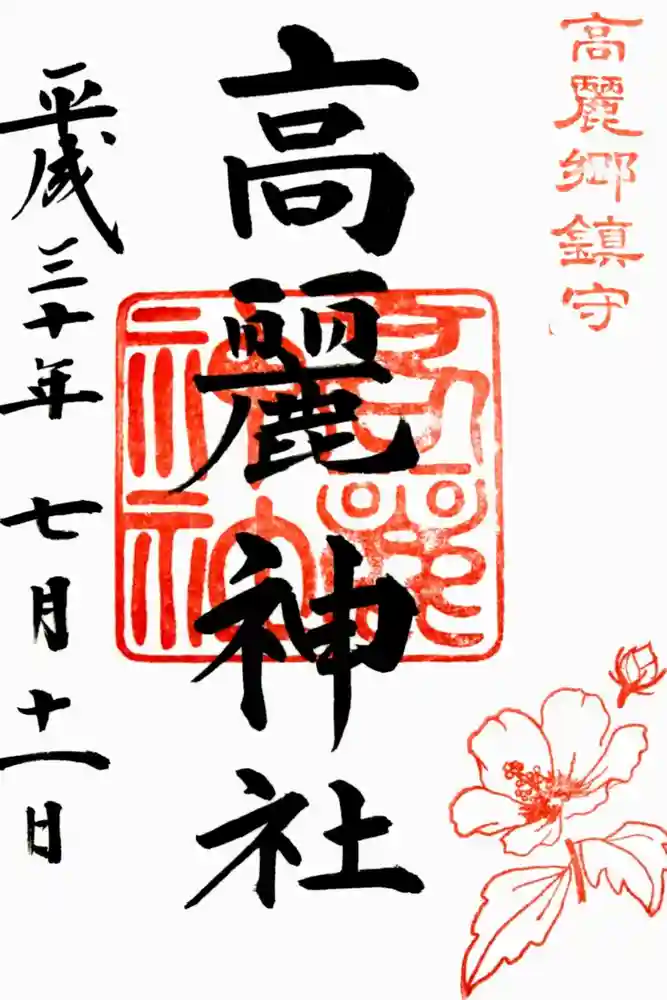 高麗郷鎮守
高麗神社
平成三十年七月十一日